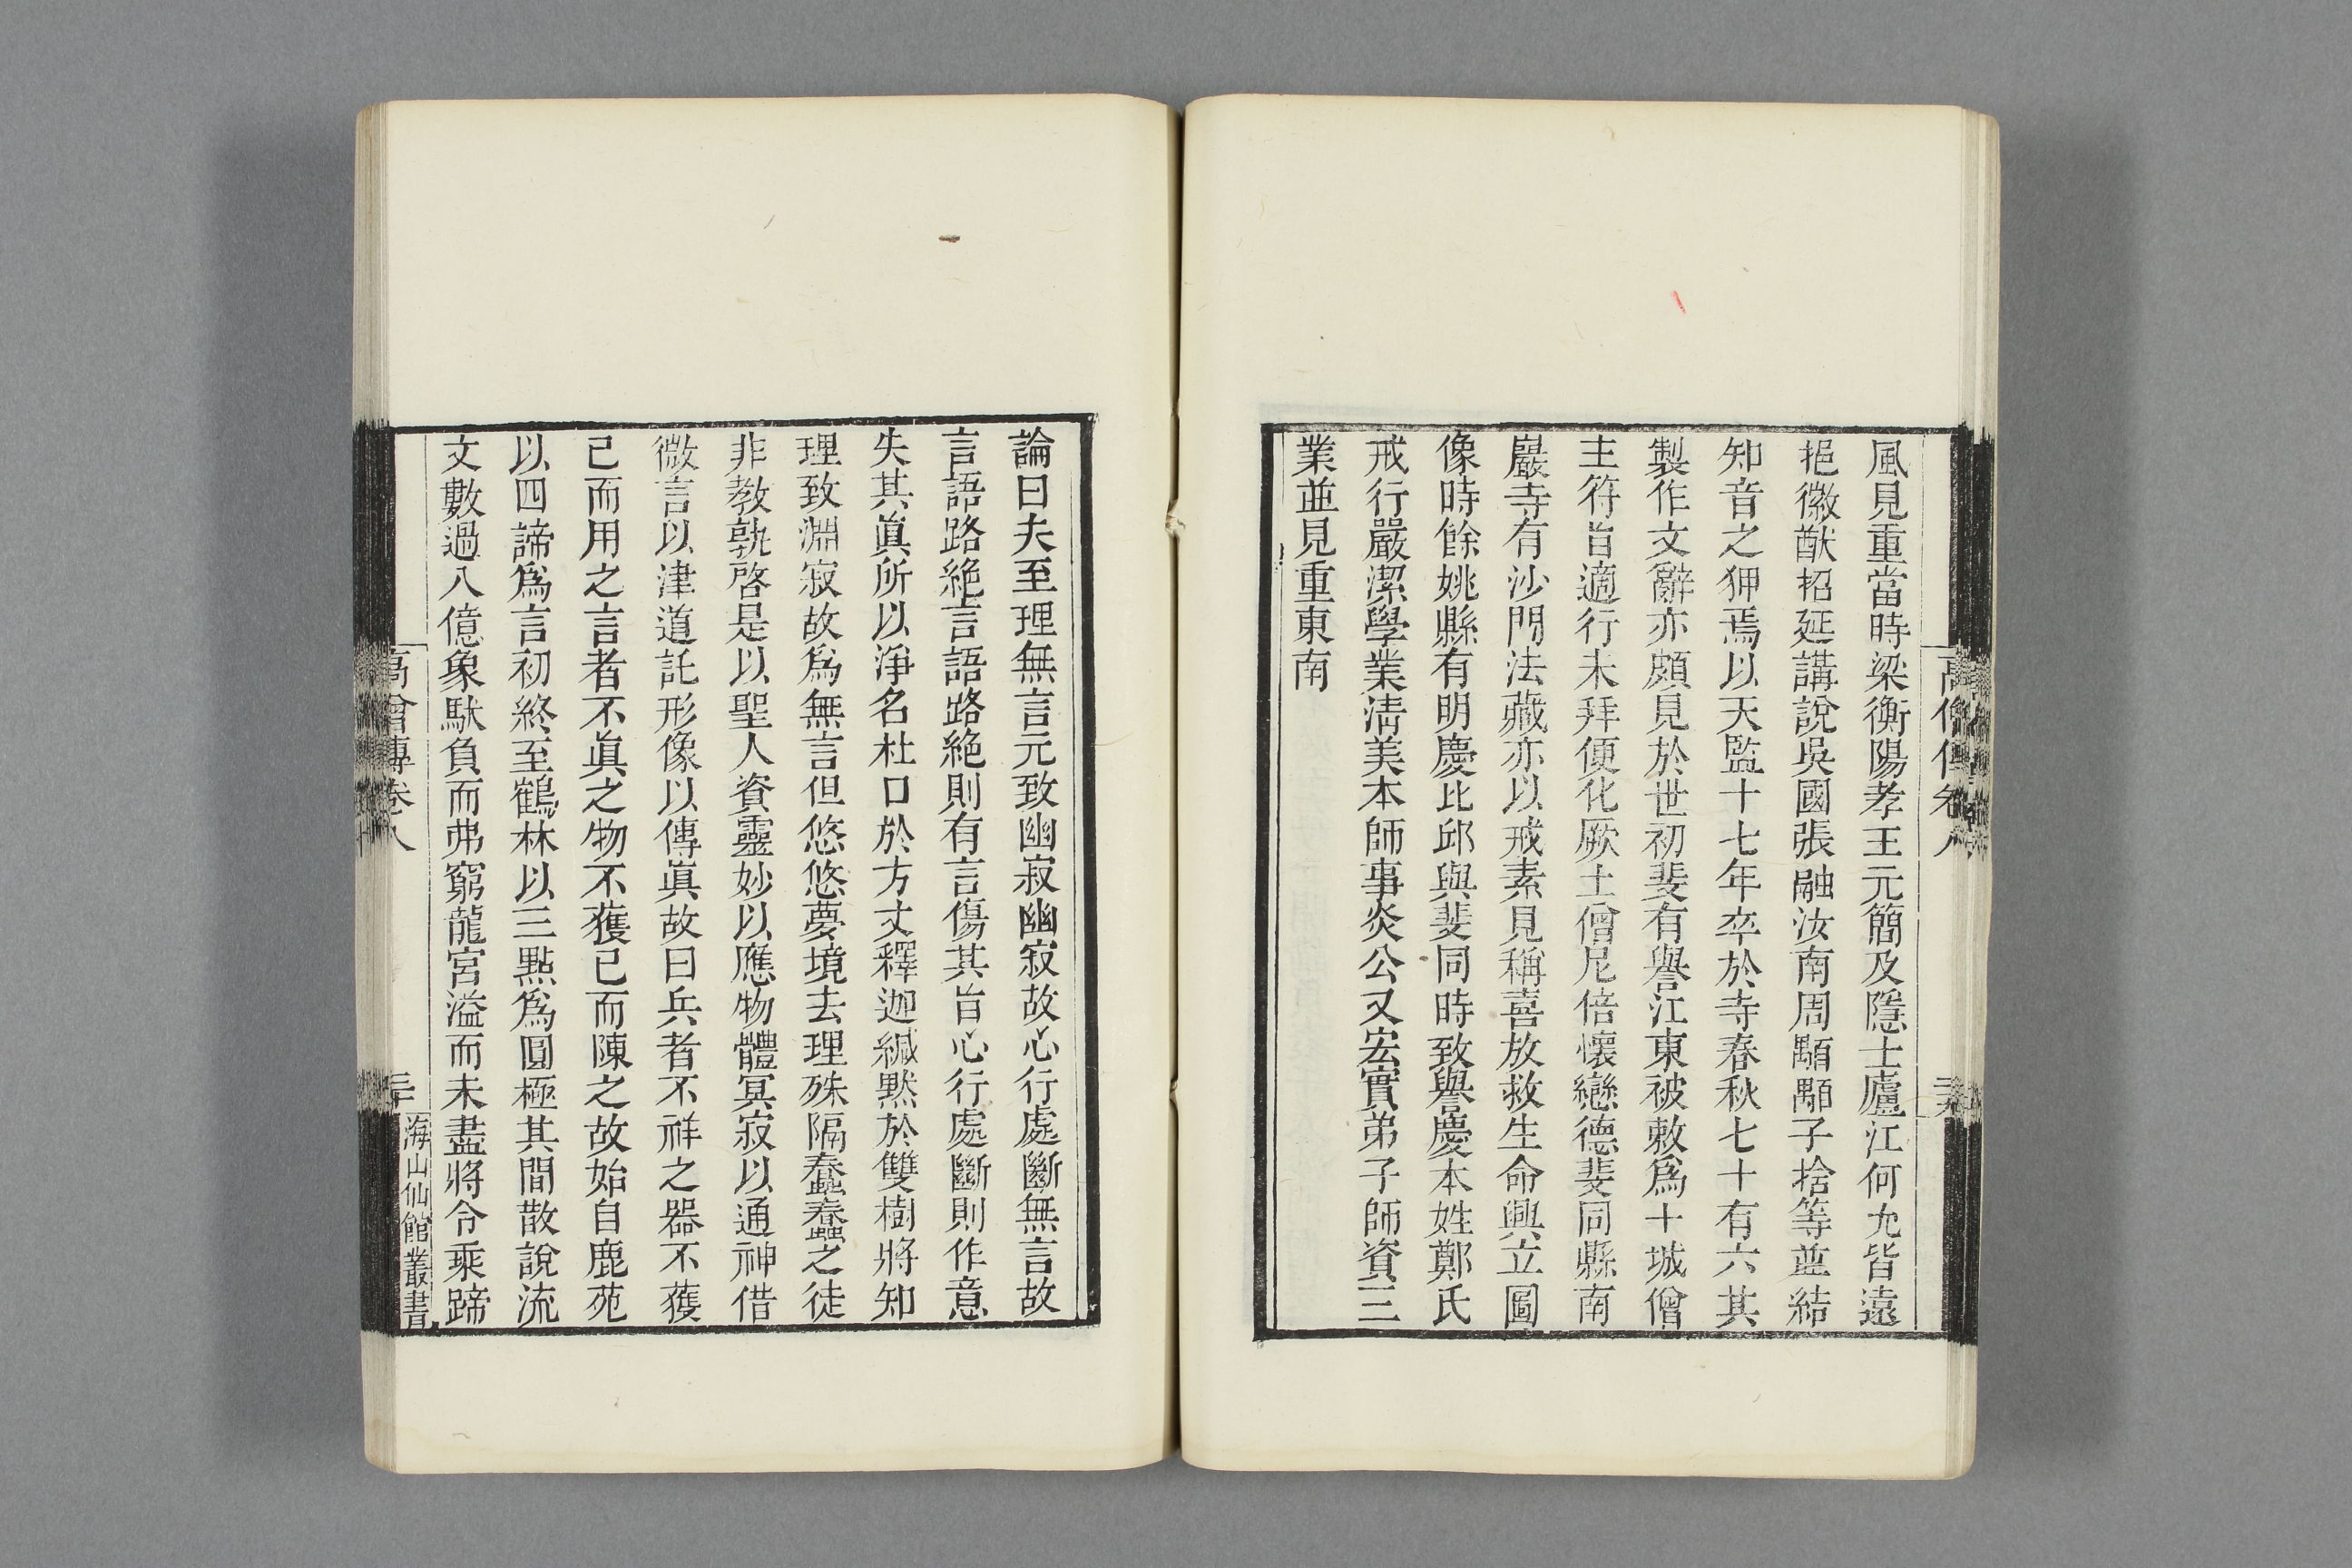 風見重當時梁衡陽孝王元簡及隱士廬江何允皆遠
挹徽猷招延講說吳國張融汝南周顒顒子捨等並結
知音之狎焉以天監十七年卒於寺春秋七十有六其
製作文辭亦頗見於世初斐有譽江東被敕爲十城僧
主符旨適行未拜便化厥土僧尼倍懷戀德斐同縣南
巖寺有沙門法藏亦以戒素見稱喜放救生命興立圖
像時餘姚縣有明慶比邱與斐同時致譽慶本姓鄭氏
戒行嚴潔學業淸美本師事炎公又宏實弟子師資三
業並見重東南
論曰夫至理無言元致幽寂幽寂故心行處斷無言故
言語路絶言語路絶則有言傷其旨心行處斷則作意
失其眞所以淨名杜口於方丈釋迦緘默於雙樹將知
理致淵寂故爲無言但悠悠夢境去理殊隔蠢蠢之徒
非教孰啓是以聖人資靈妙以應物體冥寂以通神借
微言以津道託形像以傳眞故曰兵者不祥之器不獲
已而用之言者不眞之物不獲已而陳之故始自鹿苑
以四諦爲言初終至鶴林以三點爲圓極其間散說流
文數過八億象馱負而弗窮龍宮溢而未盡將令乘蹄
高僧傳卷八
海山仙館叢書